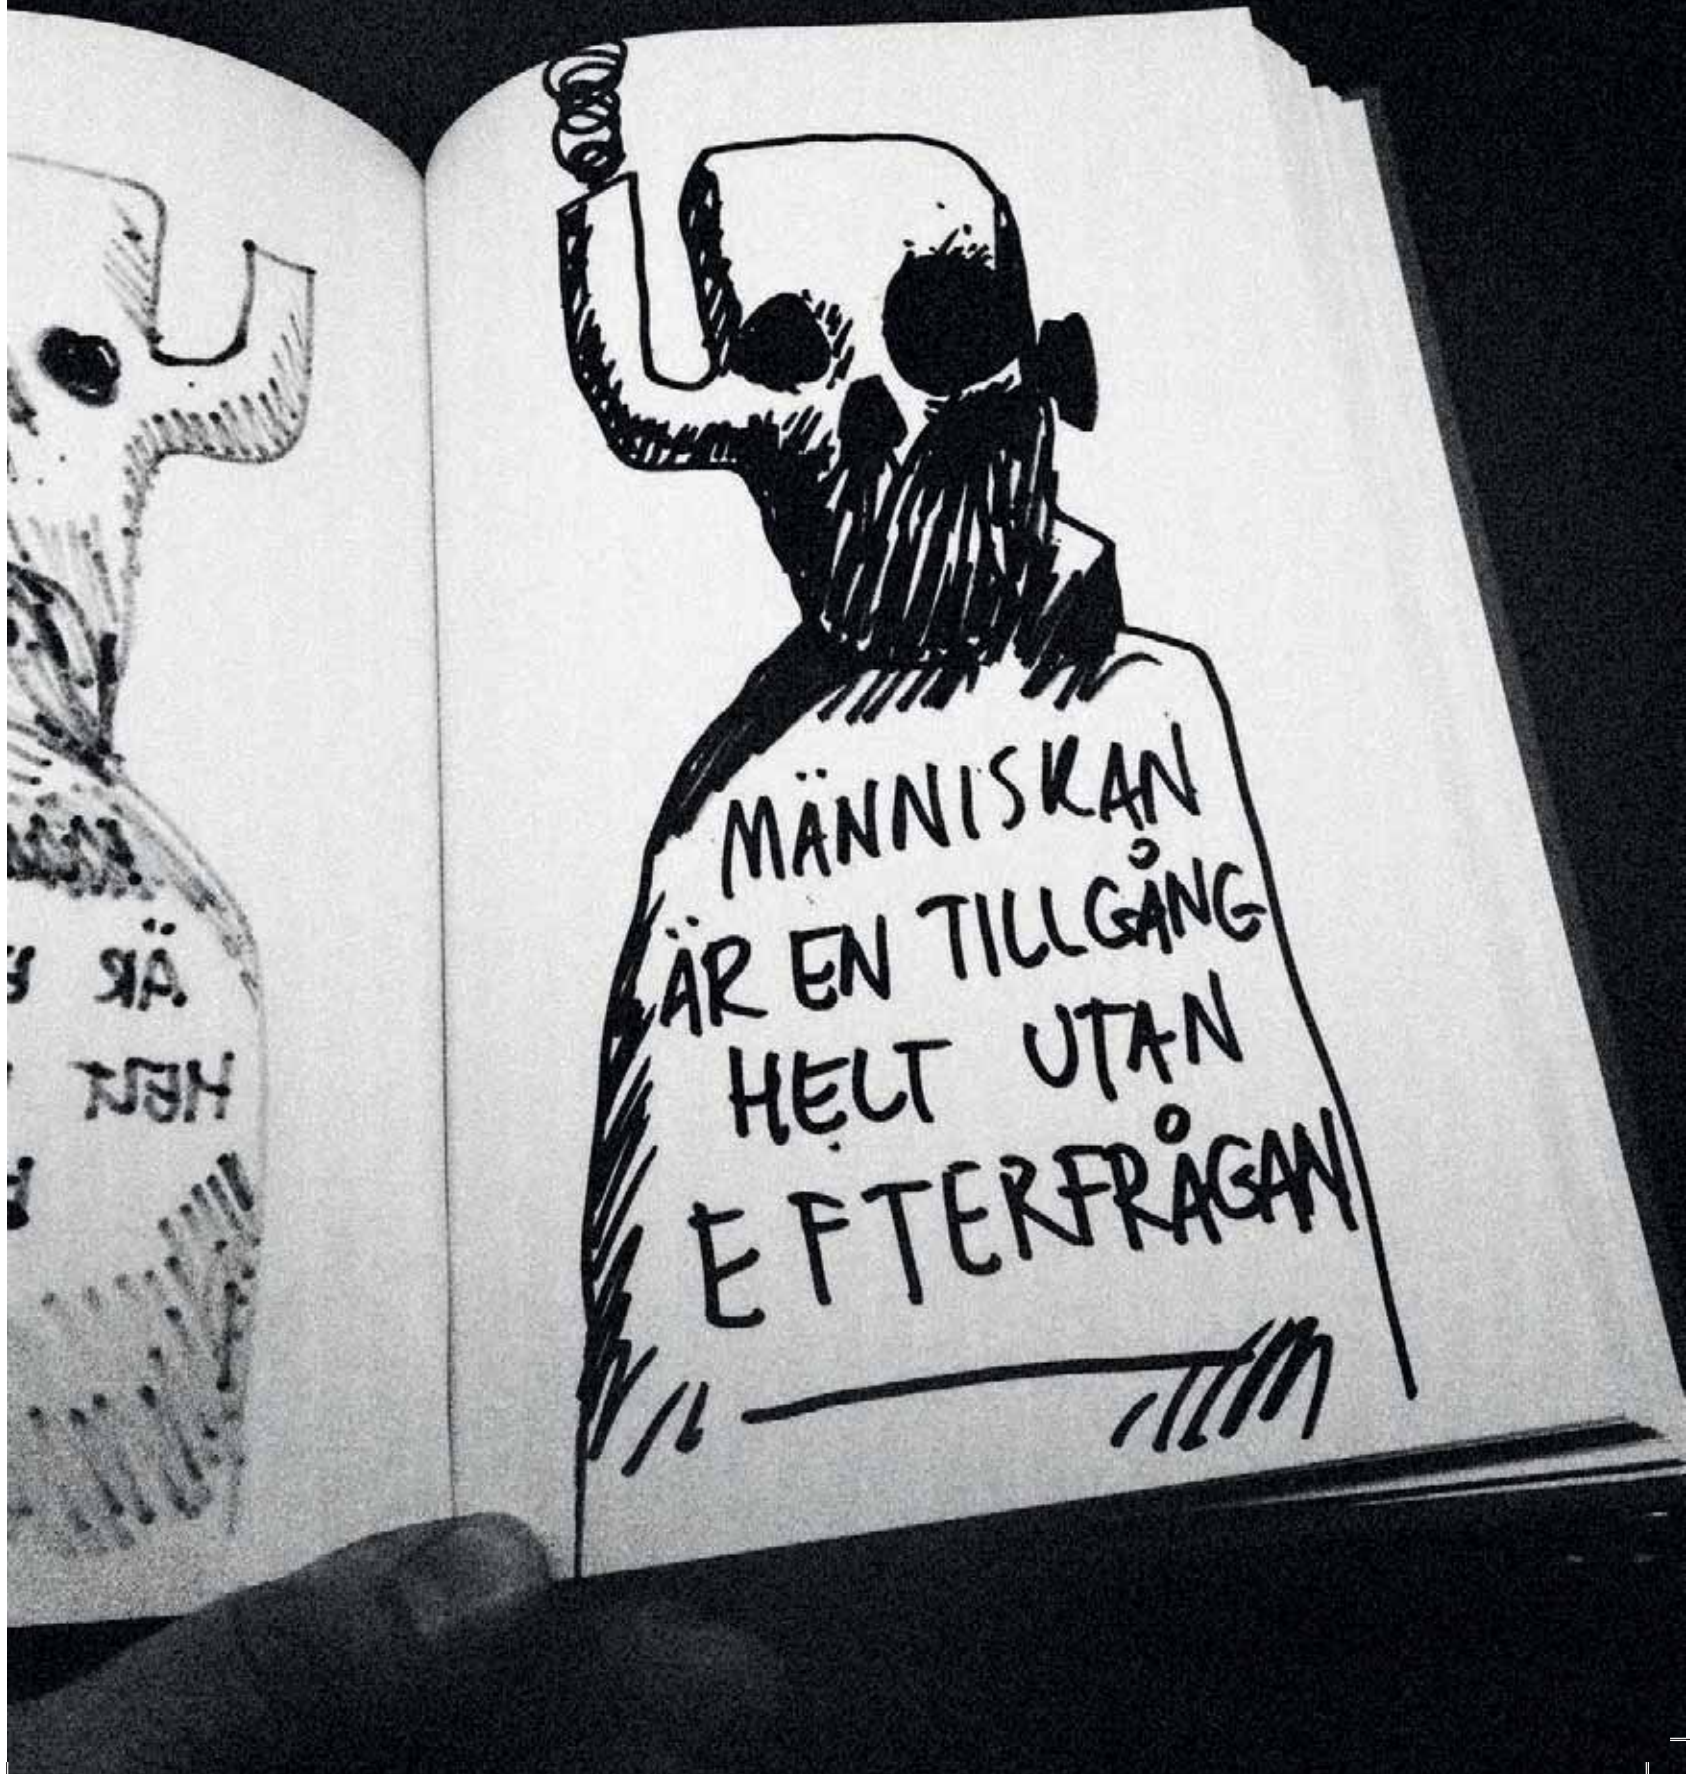 MÄNNISKAN
ÄR EN TILLGÅNG
HELT UTAN
EFTERFRÅGAN
ÄR
HELT